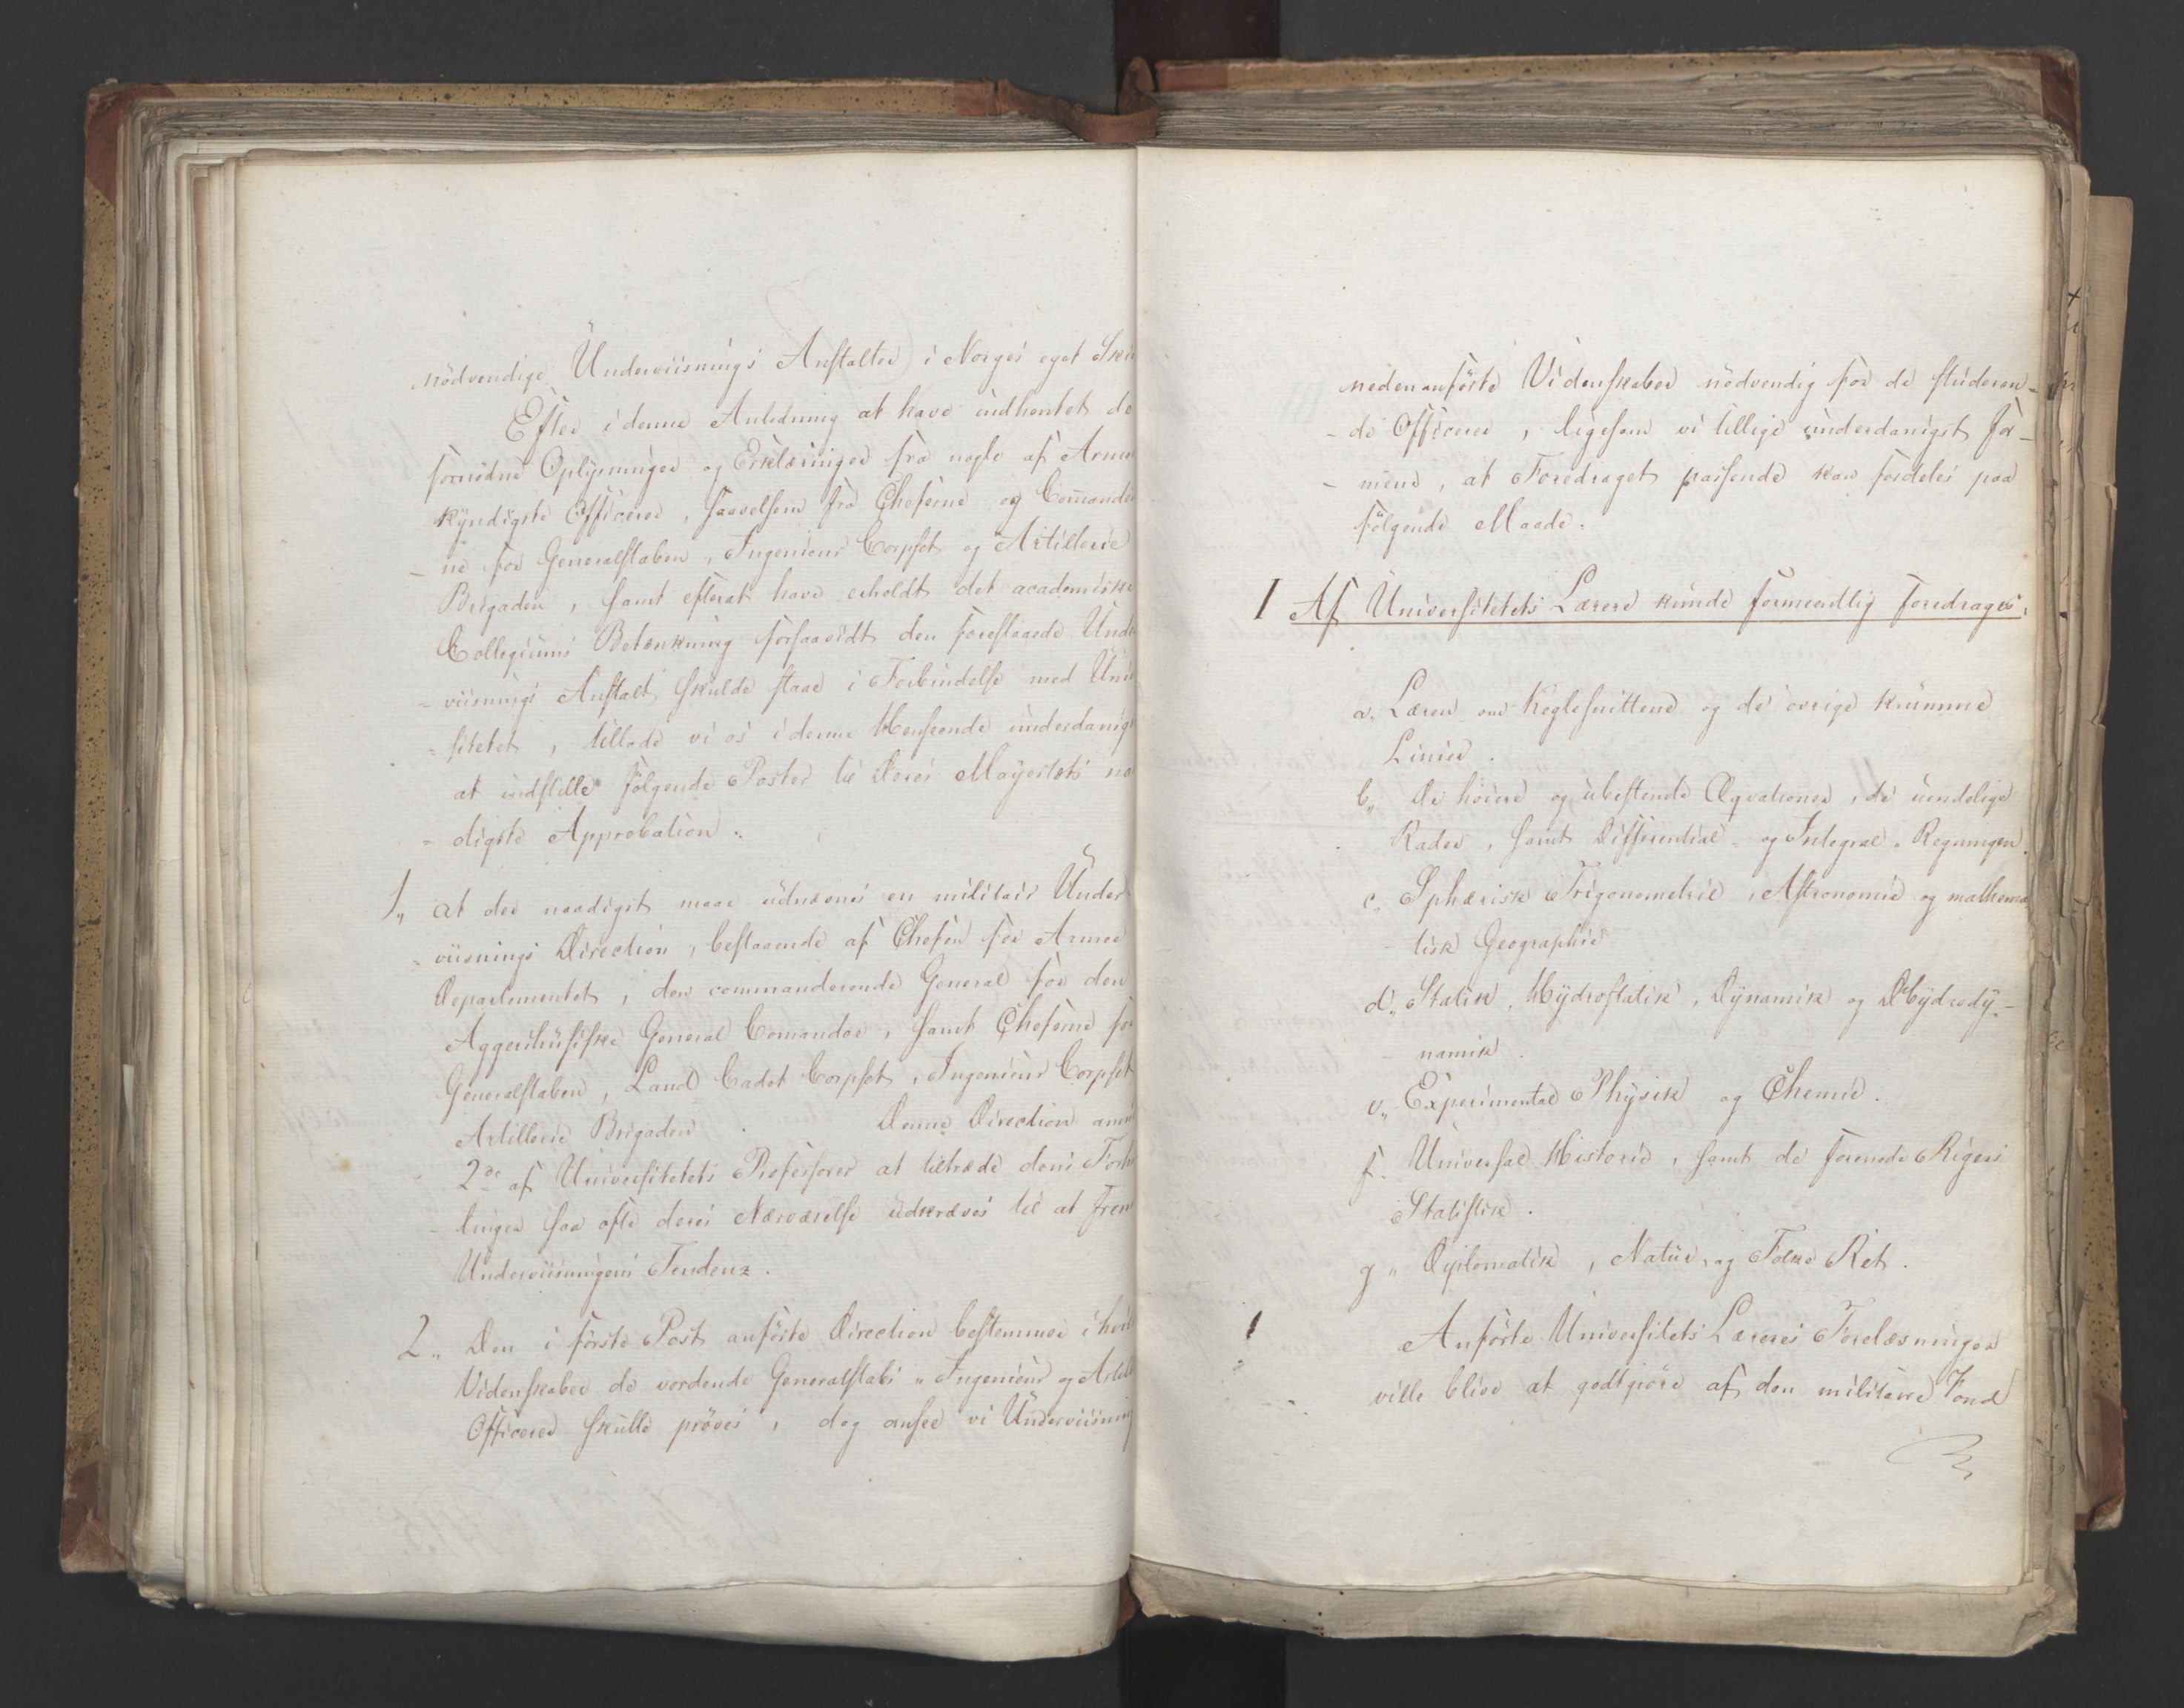 nödvendige Underviisnings Anstalter i Norges eget Skiö
Efter i denne Anledning at have indhentet de
fornödne Oplysninger og Erklæringer fra nogle af Arme
kyndigste Officerer, saavelsom fra Cheferne og Commande
- ne for Generalstaben, Ingenieur Corpset og Artillerie
Brigaden, samt efterat have erholdt det academiske
Collegiums Betænkning forsaavidt den foreslaaede Unde
- viisnings Anstalt skulde staae i Forbindelse med Univ
- sitetet, tillade vi os i denne Henseende underdanigst
at indstille følgende Poster til Deres Majestæts naa
- digste Approbation.
1„ at der naadigst maae udnævnes en militair Under
- viisnings Direction, bestaaende af Chefen for Armee
Departementet, den commanderende General for den
Aggershusiske General Comandoe, samt Cheferne for
Generalstaben, Land Cadet Corpset, Ingenieur Corpset
Artillerie Brigaden. Denne Direction anm
2de af Universitetets Professorer at tiltræde dens Forh
- linger saa ofte deres Nærværelse udkræves til at frem
Underviisningens Tendenz.
2„ Den i förste Post anförte Direction bestemmer i hvil
Videnskaber de vordende Generalstabs„ Ingenieur og Artill
Officerer skulle pröves, dog ansee vi Underviisning
nedenanförte Videnskaber nödvendig for de studeren-
- de Officerer, ligesom vi tillige underdanigst for-
- mene, at Foredraget passende kan fordeles paa
fölgende Maade.
I Af Universitetets Lærere kunde formeentlig foredrages,
a. Læren om Keglesnittene og de övrige krumme
Linier.
b„ De höiere og ubestemte Æqvationer, de uendelige
Rader, samt Differential- og Integral-Regningen.
c„ Sphærisk Trigonometrie, Astronomie og mathema
- tisk Geographie
d„ Statik, Hydrostatik, Dynamik og Hydrody-
- namik.
e„ Experimental Physik og Chemie.
f. Universal Historie, samt de forenede Rigers
Statistik.
g„ Diplomatik, Natur, og Folke Ret.
Anförte Universitets Læreres Forelæsninger
ville blive at godtgiöre af den militaire Fond